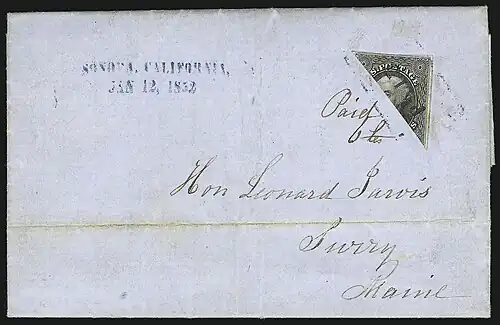 SONORA, CALIFORNIA,
JAN 12, 1852
S POSTAGE
Paid
6 cts
Hon Leonard Jarvis
Surry
Maine